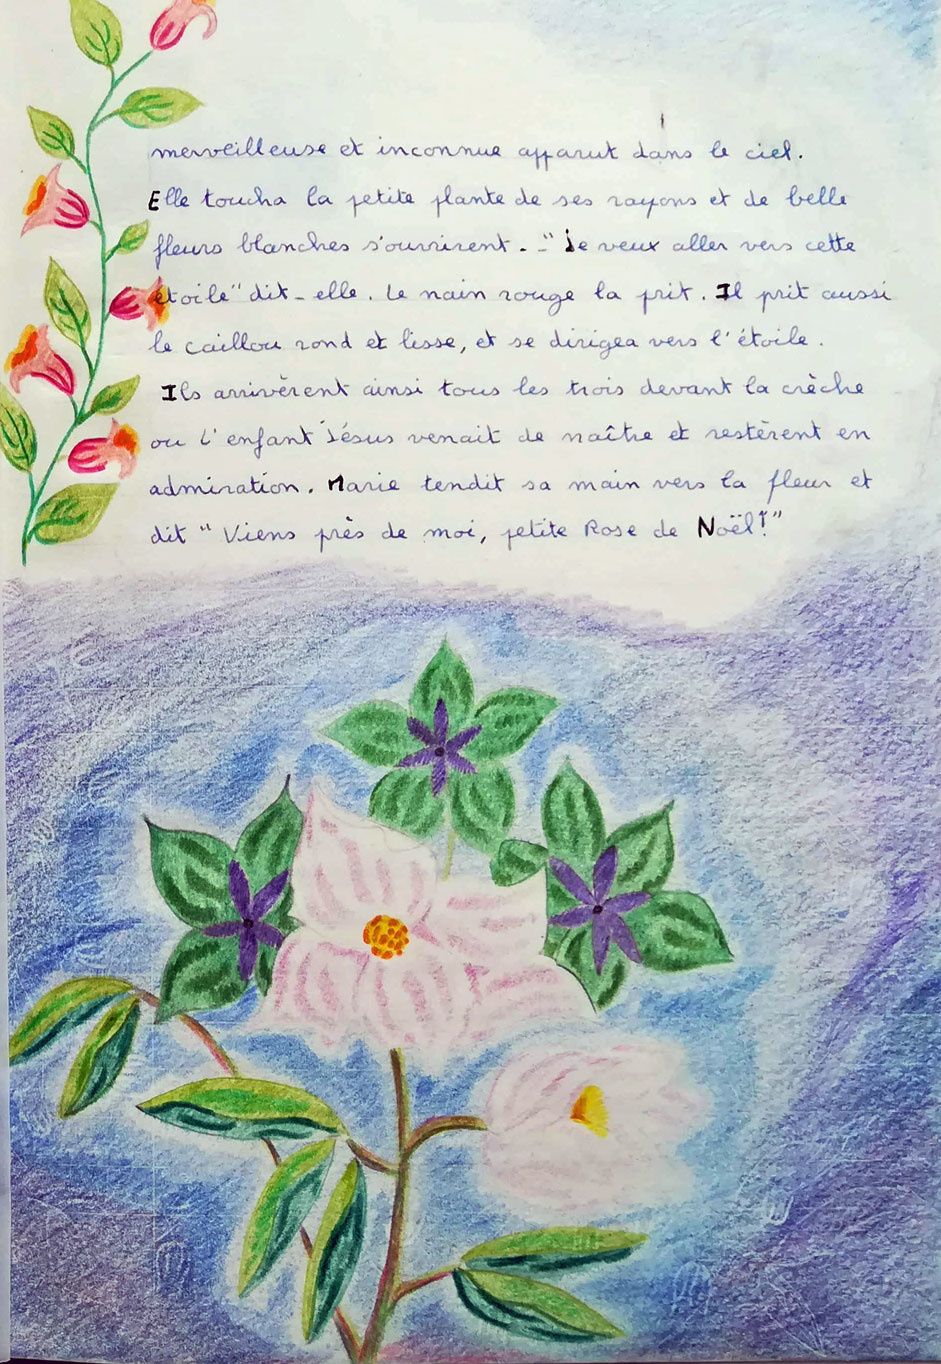 merveilleuse et inconnue apparut dans le ciel.
Elle toucha la petite plante de ses rayons et de belle
fleurs blanches s'ouvrirent. - "Je veux aller vers cette
étoile" dit-elle. Le nain rouge la prit. Il prit aussi
le caillou rond et lisse, et se dirigea vers l'étoile.
Ils arrivèrent ainsi tous les trois devant la crèche
ou l'enfant Jésus venait de naître et restèrent en
admiration. Marie tendit sa main vers la fleur et
dit "Viens près de moi, petite Rose de Noël!"